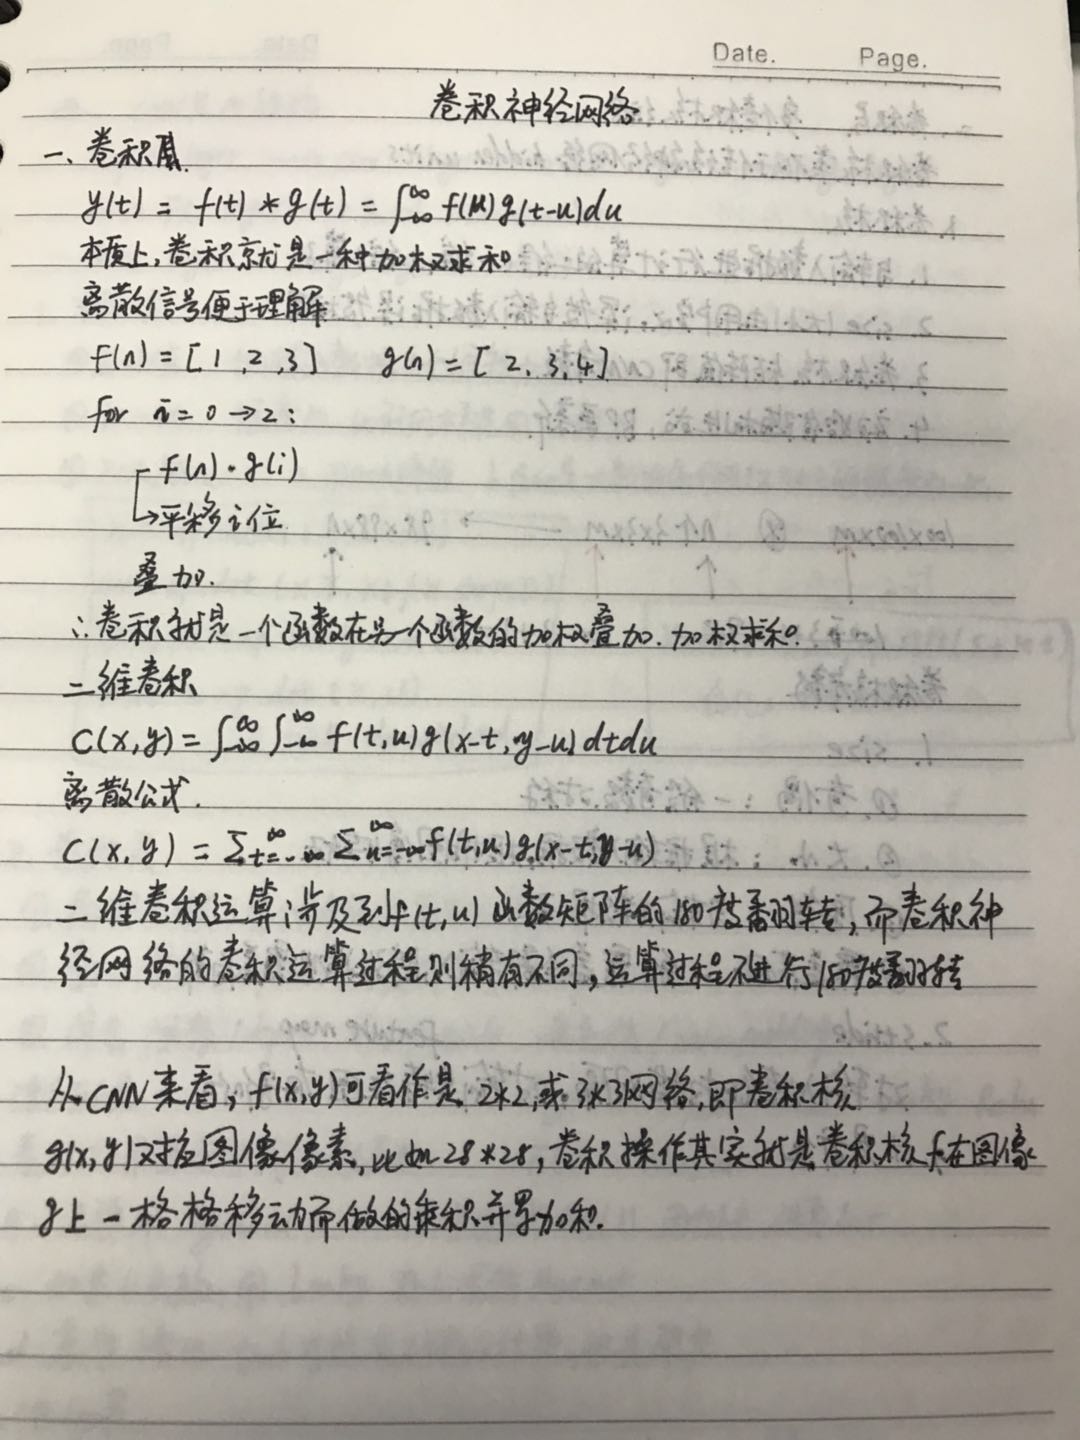 Date. Page.
卷积神经网络
一、卷积
y(t) = f(t) * g(t) = ∫_{-∞}^{∞} f(u)g(t-u)du
本质上,卷积就是一种加权求和
离散信号便于理解
f(n) = [1, 2, 3] g(n) = [2, 3, 4]
for i = 0 → 2:
f(n) · g(i)
↳平移i位
叠加.
∴卷积就是一个函数在另一个函数的加权叠加.加权求和.
二维卷积
C(x,y) = ∫_{-∞}^{∞} ∫_{-∞}^{∞} f(t,u)g(x-t,y-u)dtdu
离散公式.
C(x,y) = Σ_{t=-∞}^{∞} Σ_{u=-∞}^{∞} f(t,u)g(x-t,y-u)
二维卷积运算涉及到f(t,u)函数矩阵的180度翻转,而卷积神
经网络的卷积运算过程则稍有不同,运算过程不进行180度翻转
从CNN来看,f(x,y)可看作是2*2,或3*3网络,即卷积核
g(x,y)对应图像像素,比如28*28,卷积操作其实就是卷积核f在图像
g上一格格移动而做的乘积并累加和.